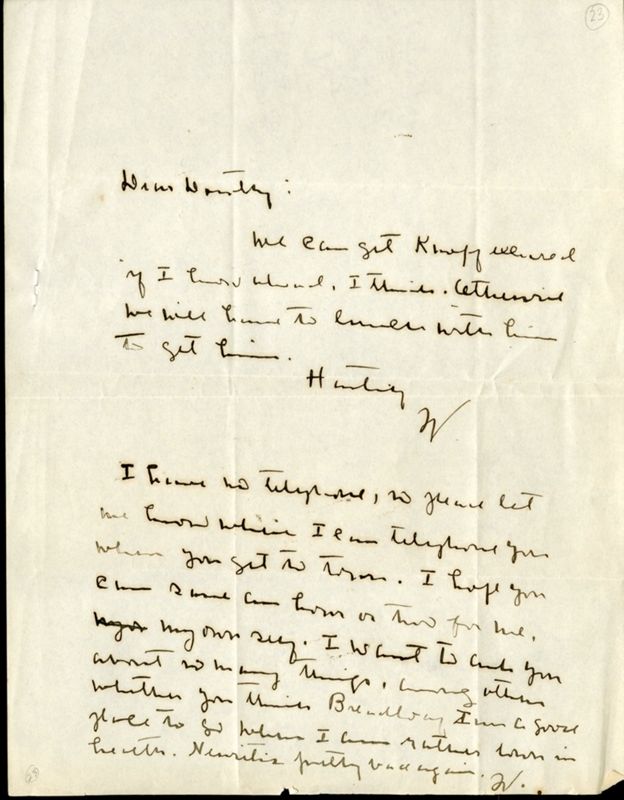 23
Dear Dorothy:
We can get Knopf
if I know ahead, I think. Otherwise
we will have to lunch with him
to get him.
Hastily
W
I have no telephone, so please let
me know where I can telephone you
when you get to town. I hope you
can save an hour or two for me,
my own self. I want to ask you
about so many things, among others
whether you think Broadway Inn a good
place to go when I am rather down in
health. Neuritis pretty bad again. W.